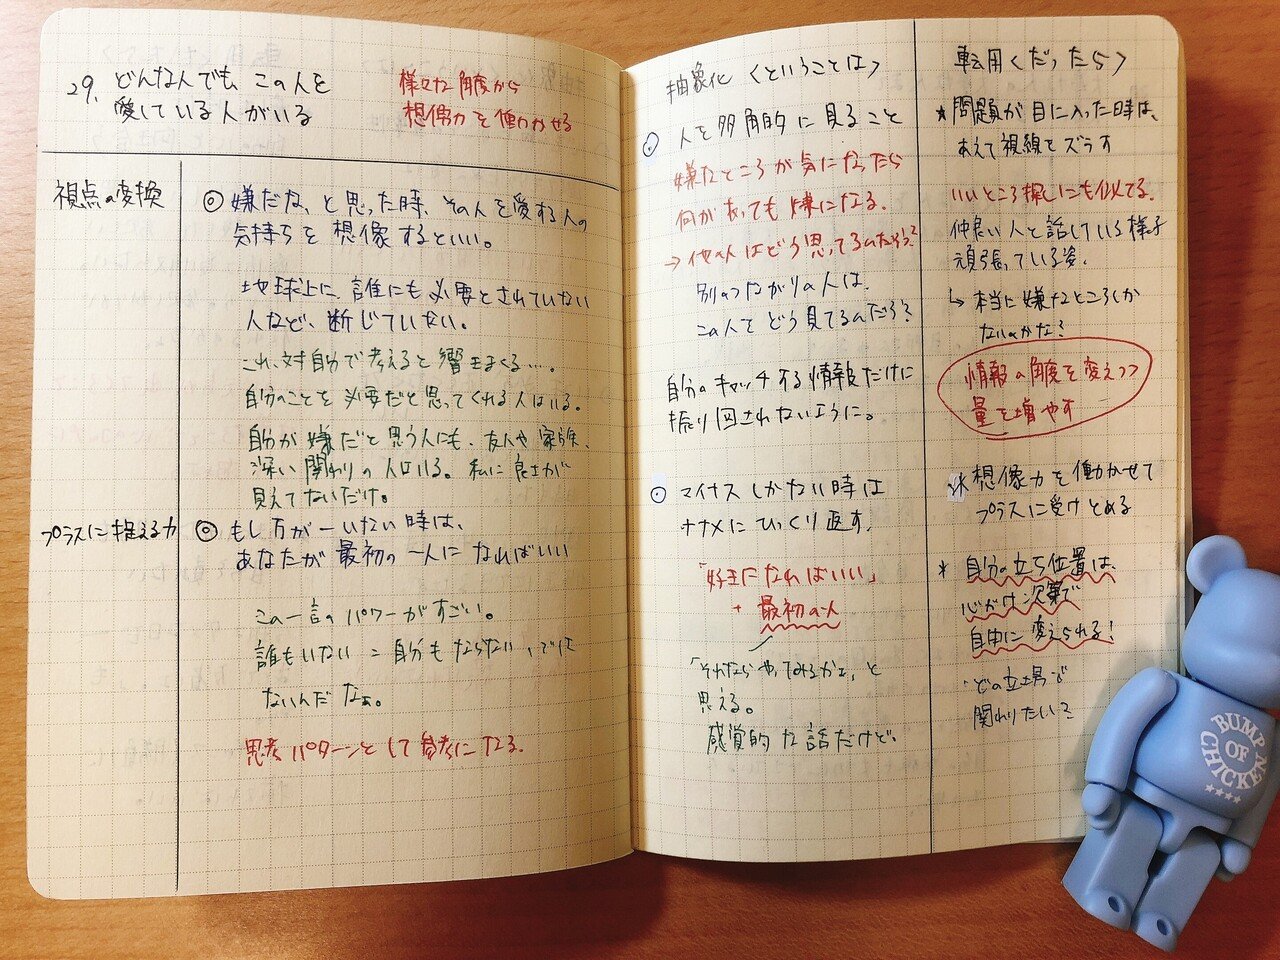 29. どんな人でも、この人を
愛している人がいる
様々な角度から
想像力を働かせる
視点の変換
◎ 嫌だな、と思った時、その人を愛する人の
気持ちを想像するといい。
地球上に、誰にも必要とされていない
人など、断じていない。
これ、対自分で考えると響きまくる…。
自分のことを必要だと思ってくれる人はいる。
自分が嫌だと思う人にも、友人や家族、
深い関わりの人はいる。私に良さが
見えてないだけ。
プラスに捉える力
◎ もし万が一いない時は、
あなたが最初の一人になればいい
この一言のパワーがすごい。
誰もいない=自分もならない、では
ないんだなぁ。
思考パターンとして参考になる。
抽象化〈ということは〉
⊙ 人を多角的に見ること
嫌なところが気になったら
何があっても嫌になる。
→他の人はどう思ってるんだろう?
別のつながりの人は、
この人をどう見てるんだろう?
自分のキャッチする情報だけに
振り回されないように。
⊙ マイナスしかない時は
ナナメにひっくり返す。
「好きになればいい」
+ 最初の人
「それならやってみるかぁ」と
思える。
感覚的な話だけど。
転用〈だったら〉
★問題が目に入った時は、
あえて視線をズラす
いいところ探しにも似てる。
仲良い人と話している様子
頑張っている姿。
↳ 本当に嫌なところしか
ないのかな?
情報の角度を変えつつ
量を増やす
★想像力を働かせて
プラスに受けとめる
★ 自分の立ち位置は、
心がけ次第で
自由に変えられる!
・どの立場で
関わりたい?
BUMP
OF
CHICKEN
★★★★